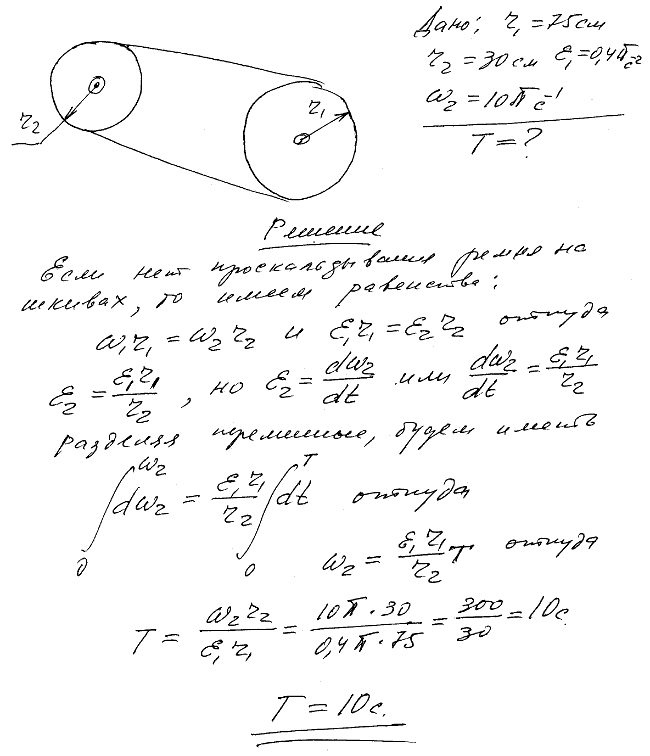 Дано: r₁ = 75 см
r₂ = 30 см ε₁ = 0,4π с⁻²
ω₂ = 10π с⁻¹
T = ?
r₂
r₁
Решение
Если нет проскальзывания ремня на
шкивах, то имеем равенства:
ω₁r₁ = ω₂r₂ и ε₁r₁ = ε₂r₂ откуда
ε₂ = ε₁r₁/r₂, но ε₂ = dω₂/dt или dω₂/dt = ε₁r₁/r₂
разделяя переменные, будем иметь
∫₀^ω₂ dω₂ = ε₁r₁/r₂ ∫₀^T dt откуда
ω₂ = ε₁r₁/r₂ T откуда
T = ω₂r₂/ε₁r₁ = 10π·30/0,4π·75 = 300/30 = 10 с.
T = 10 с.